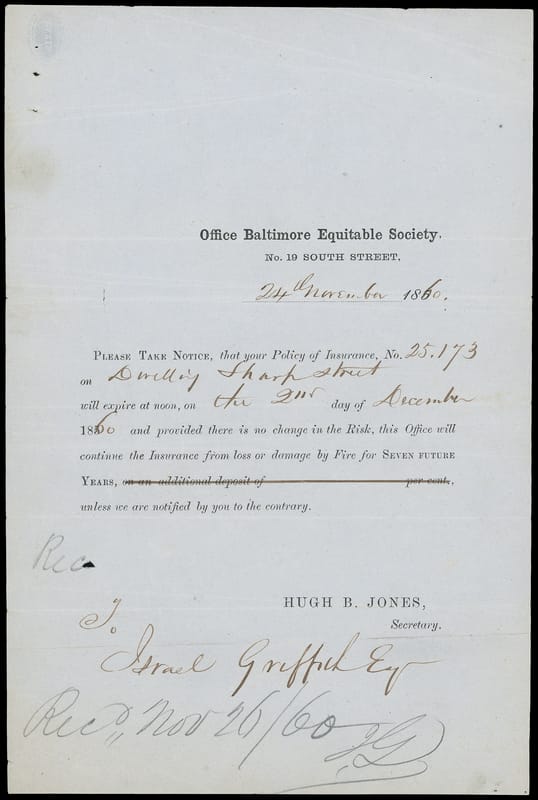 Office Baltimore Equitable Society.
No. 19 SOUTH STREET,
24th November 1860.
PLEASE TAKE NOTICE, that your Policy of Insurance, No. 25.173
on Dwelling Sharp street
will expire at noon, on the 2nd day of December
1860 and provided there is no change in the Risk, this Office will
continue the Insurance from loss or damage by Fire for SEVEN FUTURE
YEARS, on an additional deposit of per cent.,
unless we are notified by you to the contrary.
Rec
HUGH B. JONES,
Secretary.
To
Israel Griffith Esq
Recd,, Nov 26/60 I,G